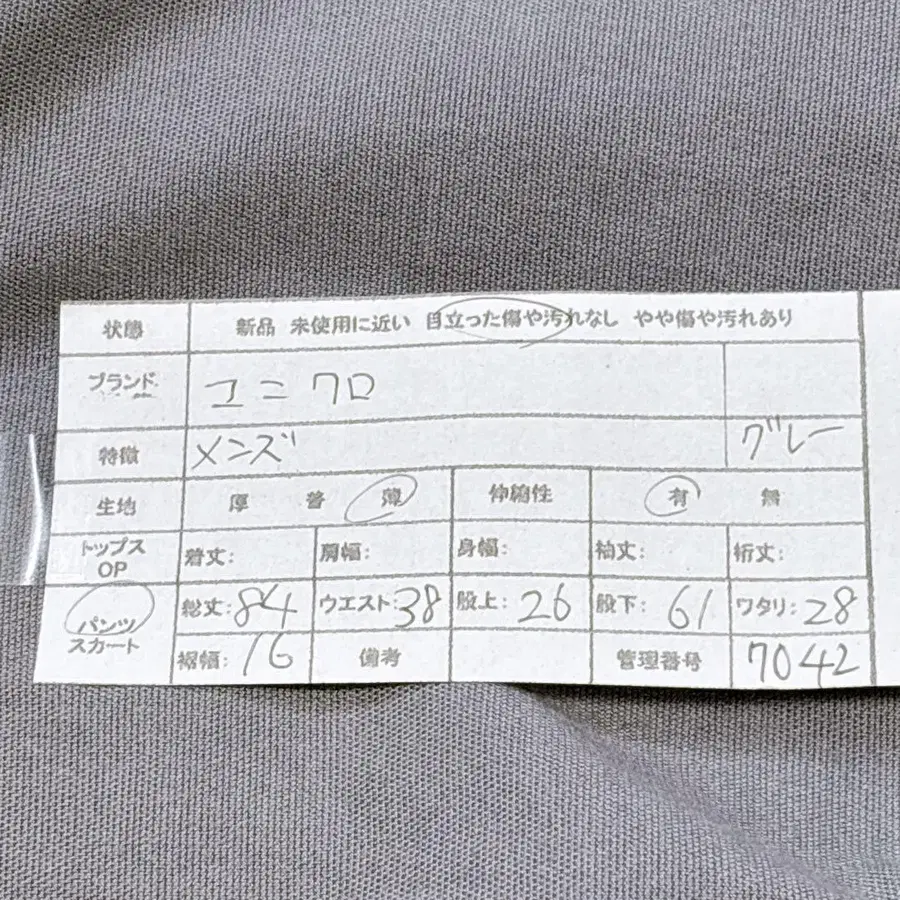 状態 新品 未使用に近い 目立った傷や汚れなし やや傷や汚れあり
ブランド ユニクロ
特徴 メンズ グレー
生地 厚 普 薄 伸縮性 有 無
トップス OP 着丈: 肩幅: 身幅: 袖丈: 裄丈:
パンツ スカート 総丈:84 ウエスト:38 股上:26 股下:61 ワタリ:28
裾幅:16 備考 管理番号 7042